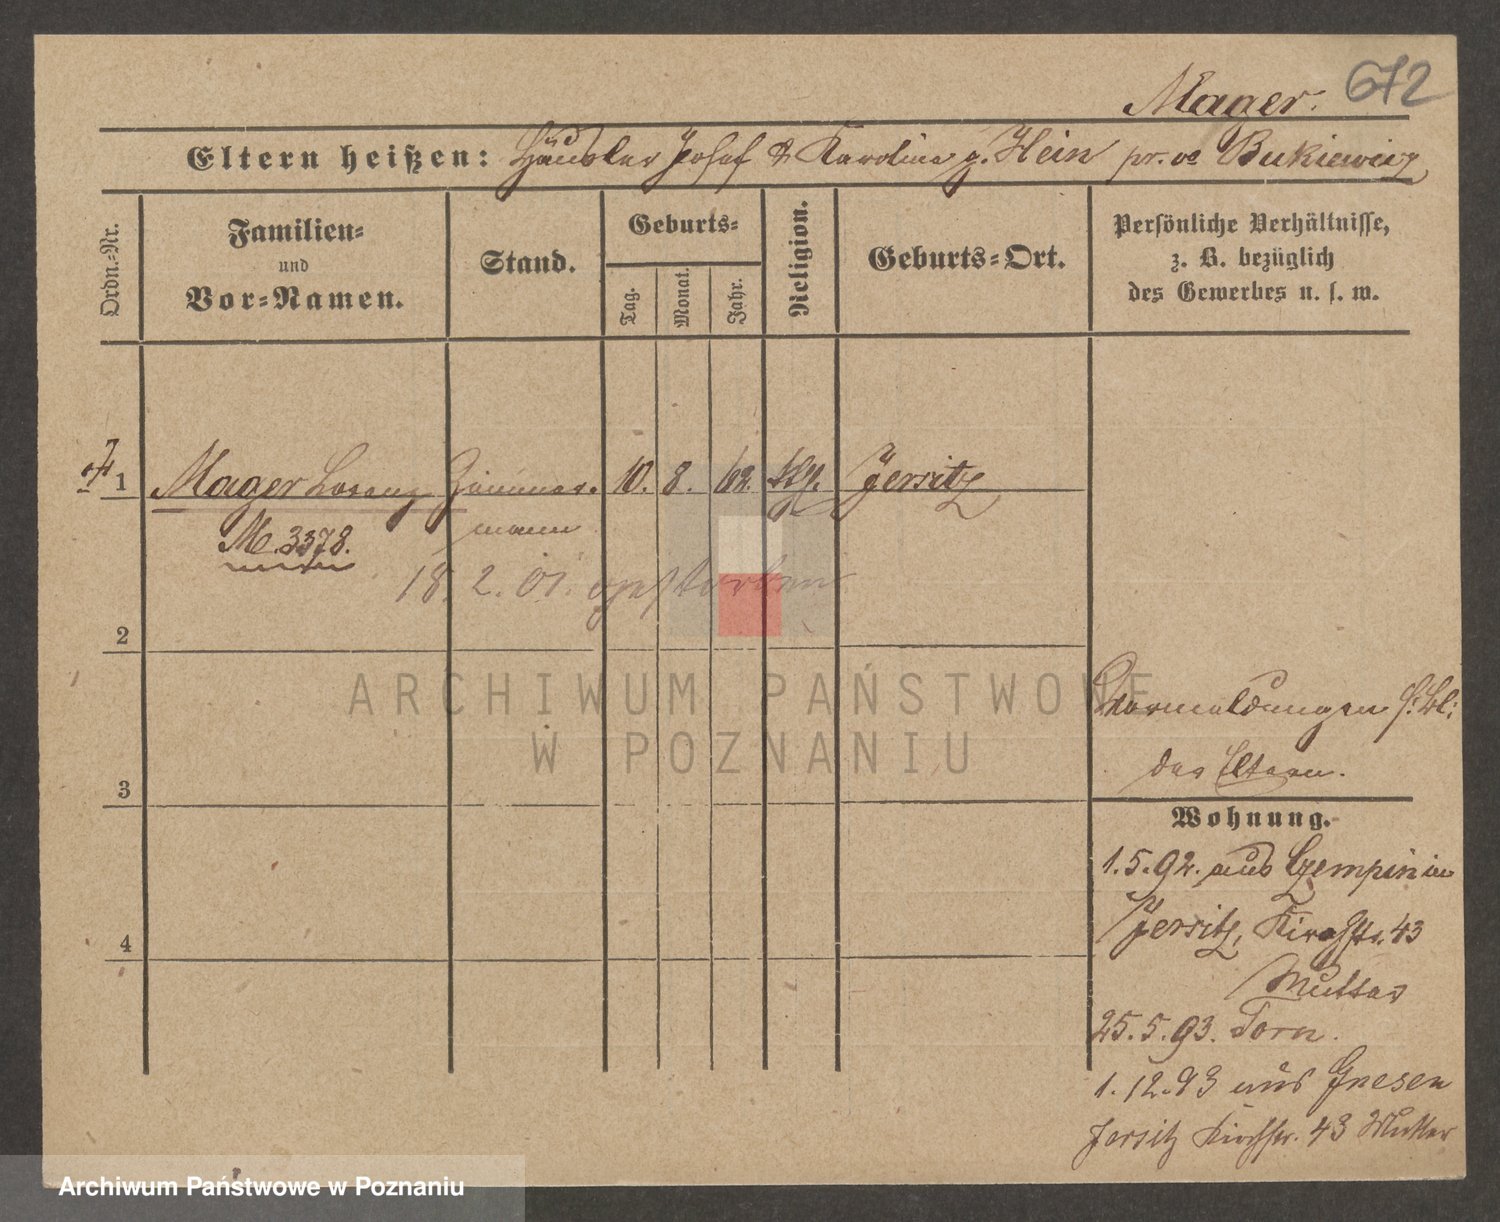 Mager. 672
Eltern heißen: Häusler Josef & Karolina g. Hein pr. vo Bukiewicz
Ordn.-Nr.
Familien-
und
Vor-Namen.
Stand.
Geburts-
Tag.
Monat.
Jahr.
Religion.
Geburts-Ort.
Persönliche Verhältnisse,
z. B. bezüglich
des Gewerbes u. s. w.
1 Mager Lorenz Zimmer- 10. 8. 62. Jersitz
mann
M. 3378.
18. 2. 01. gestorben
2
ARCHIWUM PAŃSTWOWE
W POZNANIU
Vormeldungen s. Bl.
der Eltern.
3
Wohnung.
1.5.92. aus Czempin in
Jersitz, Kirchstr. 43
4
Mutter
25.5.93. Torn.
1.12.93 aus Gnesen
Jersitz Kirchstr. 43 Mutter
Archiwum Państwowe w Poznaniu